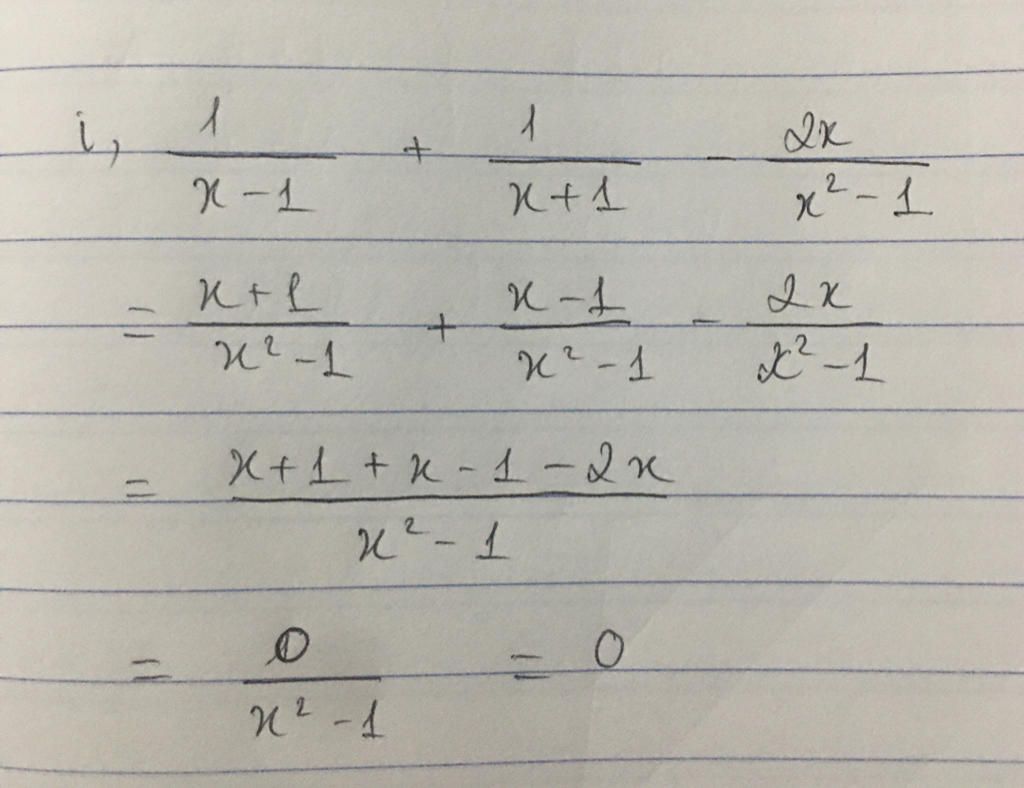 i, 1/(x-1) + 1/(x+1) - 2x/(x²-1)
= (x+1)/(x²-1) + (x-1)/(x²-1) - 2x/(x²-1)
= (x+1+x-1-2x)/(x²-1)
= 0/(x²-1) = 0